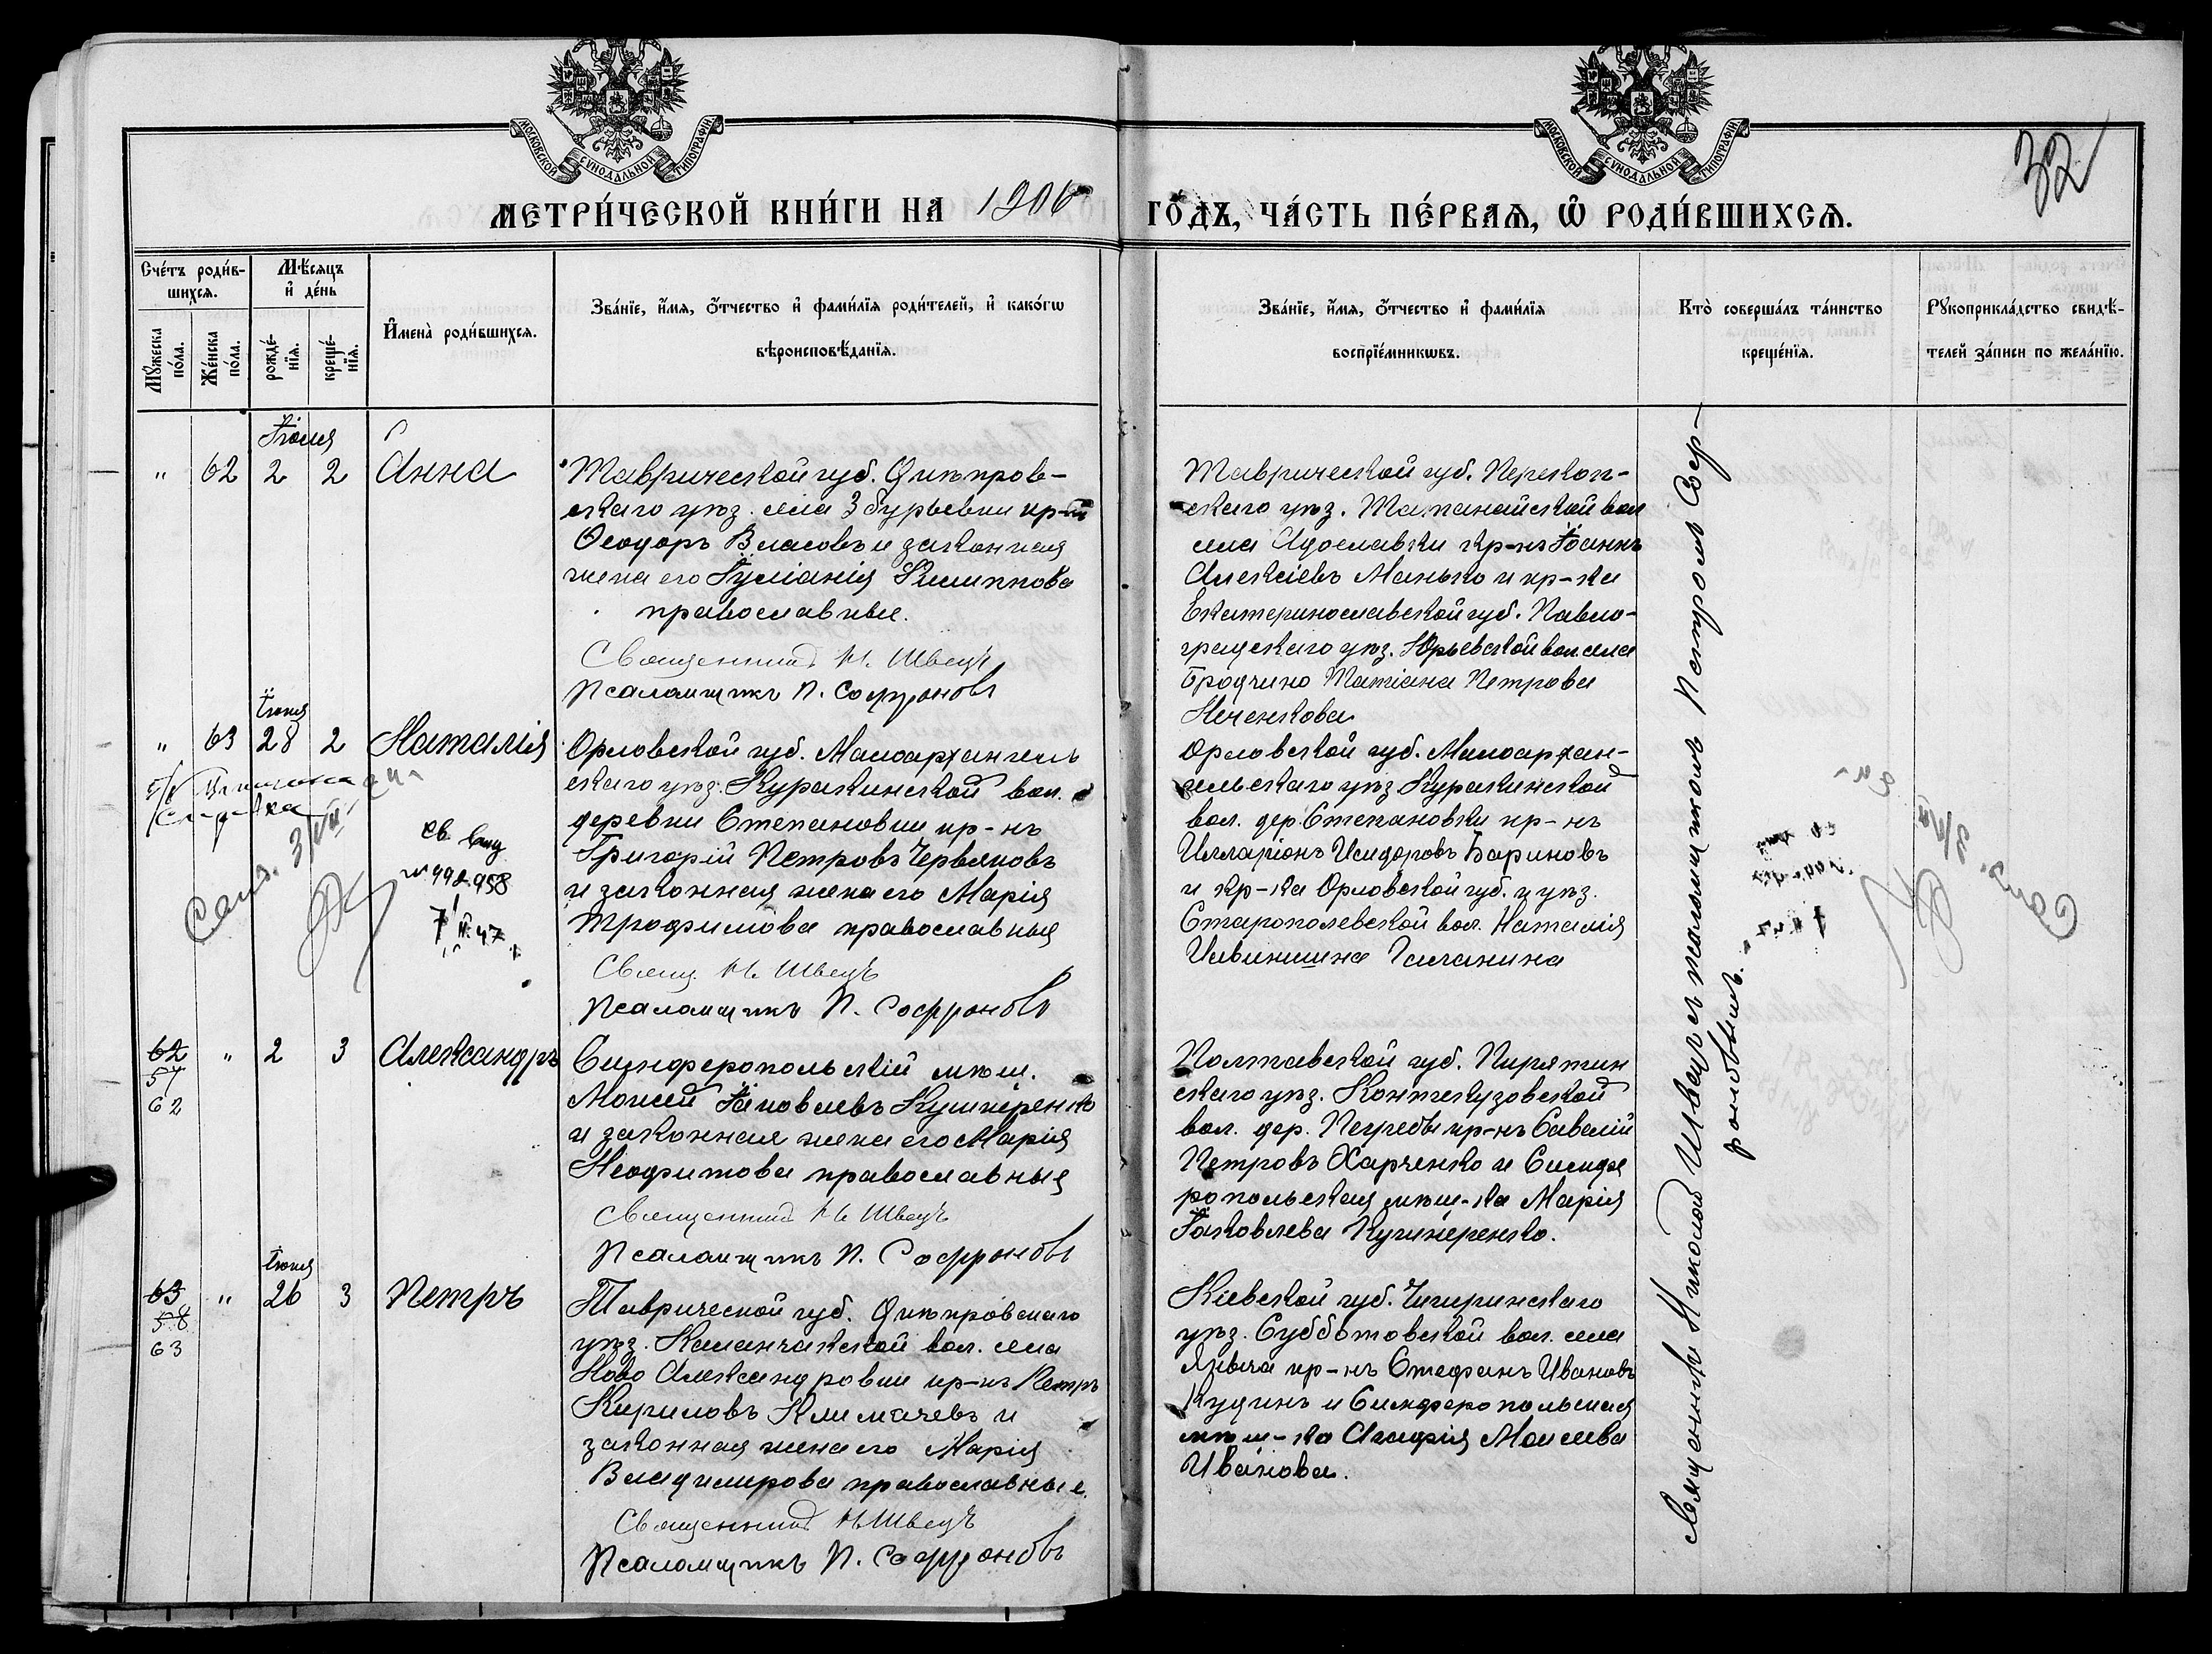 МОСКОВСКОЙ СѴНОДАЛЬНОЙ ТИПОГРАФІИ
МОСКОВСКОЙ СѴНОДАЛЬНОЙ ТИПОГРАФІИ
32
МЕТРИ́ЧЕСКОЙ КНИ́ГИ НА 1906 ГО́ДЪ, ЧА́СТЬ ПЕ́РВАѦ, Ѽ РОДИ́ВШИХСѦ.
Сче́тъ роди́в-
шихсѧ.
Мꙋ́жеска по́ла.
Же́нска по́ла.
Мѣ́сѧцъ
и҆ де́нь
рожде́-
нїѧ.
креще́-
нїѧ.
И҆мена̀ роди́вшихсѧ.
Зва́нїе, и҆́мѧ, ѻ҆́тчество и҆ фами́лїѧ роди́телей, и҆ како́гѡ
вѣроисповѣ́данїѧ.
Зва́нїе, и҆́мѧ, ѻ҆́тчество и҆ фами́лїѧ
воспрїе́мникѡвъ.
Кто̀ соверша́лъ та́инство
креще́нїѧ.
Рꙋкоприкла́дство свидѣ́-
телей за́писи по жела́нїю.
Іюля
" 62 2 2 Анна
Таврической губ. Днѣпров-
скаго уѣз. села Збурьевки кр-нъ
Ѳеодоръ Власовъ и законная
жена его Іуліанія Филиппова
православные.
Священникъ Н. Швецъ
Псаломщикъ П. Софроновъ
Таврической губ. Перекоп-
скаго уѣз. Магланайской вол
села кр-нъ Іоаннъ
Алексіевъ Манько и кр-ка
Екатеринославской губ. Павло-
градскаго уѣз. Юрьевской вол. села
Татіана Петрова
Неченкова
Іюня
" 63 28 2 Наталія
Орловской губ. Малоархангель
скаго уѣз. Куракинской вол.
деревни Степановки кр-нъ
Григорій Петровъ Червяковъ
и законная жена его Марія
Трофимова православныя
Свящ. Н. Швецъ
Псаломщикъ П. Софроновъ
Орловской губ. Малоархан-
гельскаго уѣз Куракинской
вол. дер. Степановки кр-нъ
Илларіонъ Исидоровъ Бариновъ
и кр-ка Орловской губ. и уѣз.
Старополевской вол. Наталія
справка
св выд
№ 998958
7/II 47
62
57
62
" 2 3 Александръ
Симферопольскій мѣщ.
Моисей Іаковлевъ Кушнеренко
и законная жена его Марія
Неофитова православныя
Священникъ Н. Швецъ
Псаломщикъ П. Софроновъ
Полтавской губ. Пирятин
скаго уѣз. вол. дер. Погребы кр-нъ Савелій
Петровъ Харченко и Симфе
ропольская мѣщ-ка Марія
Іаковлева Кушнеренко.
Іюня
63
58
63
" 26 3 Петръ
Таврической губ. Днѣпровскаго
уѣз. Каланчакской вол. села
Ново Александровки кр-нъ Петръ
Кириловъ Климачевъ и
законная жена его Марія
Владимирова православные.
Священникъ Н. Швецъ
Псаломщикъ П. Софроновъ
Кіевской губ. Чигиринскаго
уѣз. Субботовской вол. села
кр-нъ Стефанъ Ивановъ
Кудинъ и Симферопольская
мѣщ-ка Агафія Моисеева
Иванова.
Священникъ Николай Швецъ съ псаломщикомъ Петромъ Соф-
роновымъ.